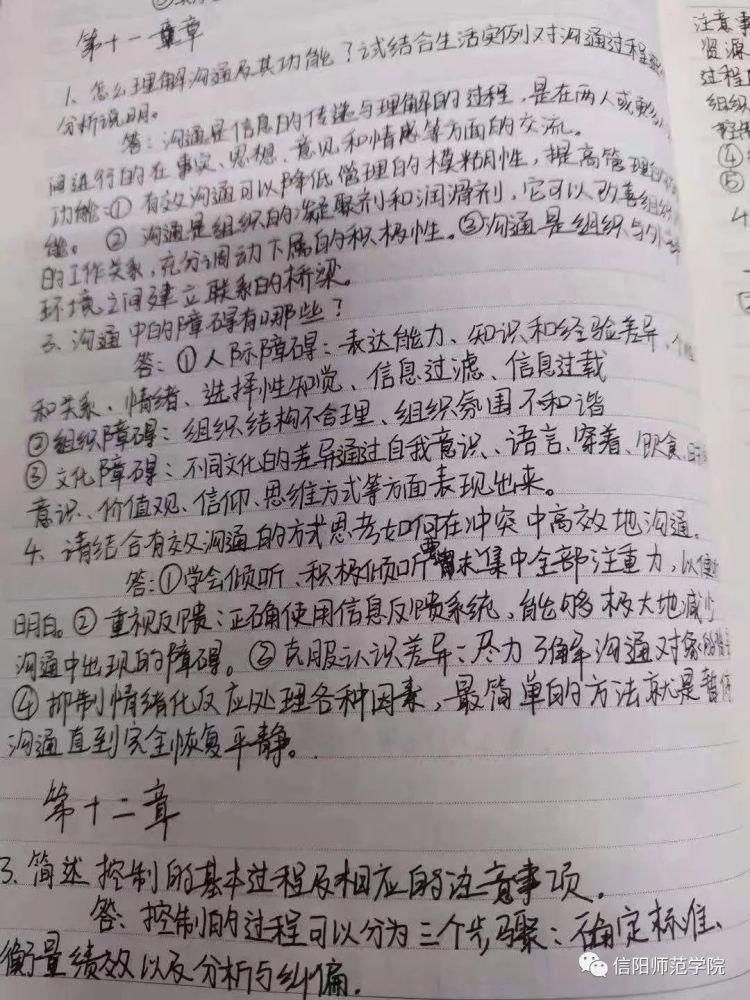 第十一章章
1、怎么理解沟通及其功能？试结合生活实例对沟通过程
分析说明。
答：沟通是信息的传递与理解的过程，是在两人或更
间进行的在事实、思想、意见和情感等方面的交流。
功能：①有效沟通可以降低管理的模糊性，提高管理的
能。②沟通是组织的凝聚剂和润滑剂，它可以改善组织
的工作关系，充分调动下属的积极性。③沟通是组织与外
环境之间建立联系的桥梁。
3、沟通中的障碍有哪些？
答：①人际障碍：表达能力、知识和经验差异、个
和关系、情绪、选择性知觉、信息过滤、信息过载
②组织障碍：组织结构不合理、组织氛围不和谐
③文化障碍：不同文化的差异通过自我意识、语言、穿着、饮食、
意识、价值观、信仰、思维方式等方面表现出来。
4、请结合有效沟通的方式思考如何在冲突中高效地沟通。
答：①学会倾听、积极倾听要求集中全部注重力，以便
明白。②重视反馈：正确使用信息反馈系统，能够极大地减少
沟通中出现的障碍。③克服认识差异：尽力了解沟通对象的
④抑制情绪化反应处理各种因素，最简单的方法就是暂停
沟通直到完全恢复平静。
第十二章
3、简述控制的基本过程及相应的注意事项。
答：控制的过程可以分为三个步骤：确定标准、
衡量绩效以及分析与纠偏.
注意事
资源
过程
组织
④
⑤
4
信阳师范学院